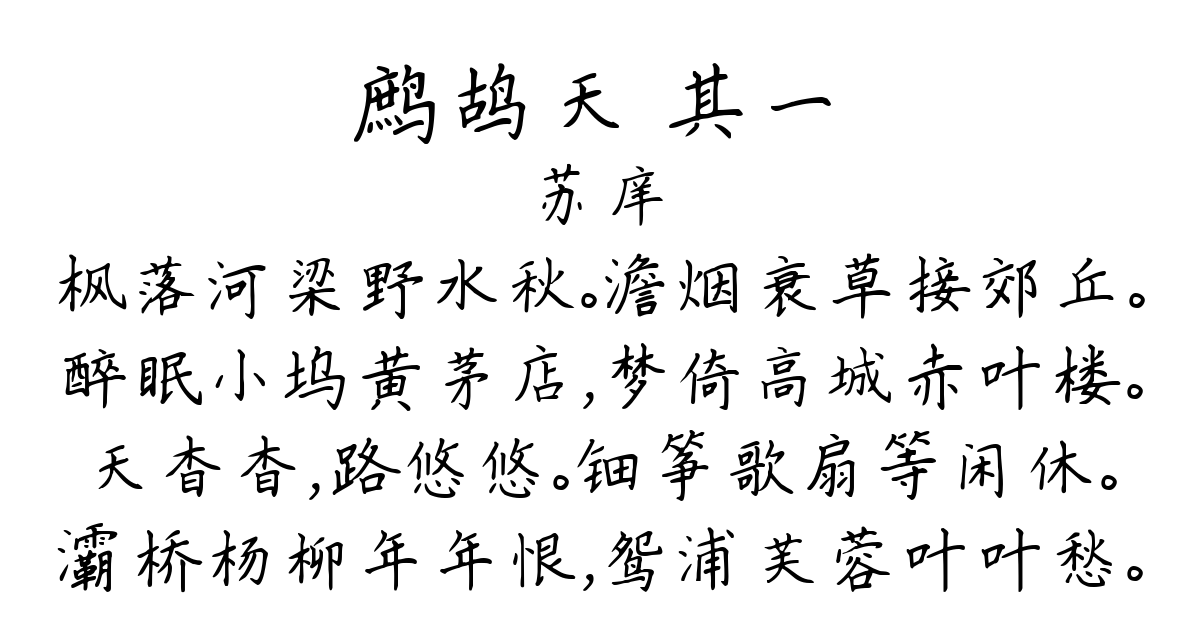 鹧鸪天 其一
苏庠
枫落河梁野水秋。澹烟衰草接郊丘。
醉眠小坞黄茅店,梦倚高城赤叶楼。
天杳杳,路悠悠。钿筝歌扇等闲休。
灞桥杨柳年年恨,鸳浦芙蓉叶叶愁。